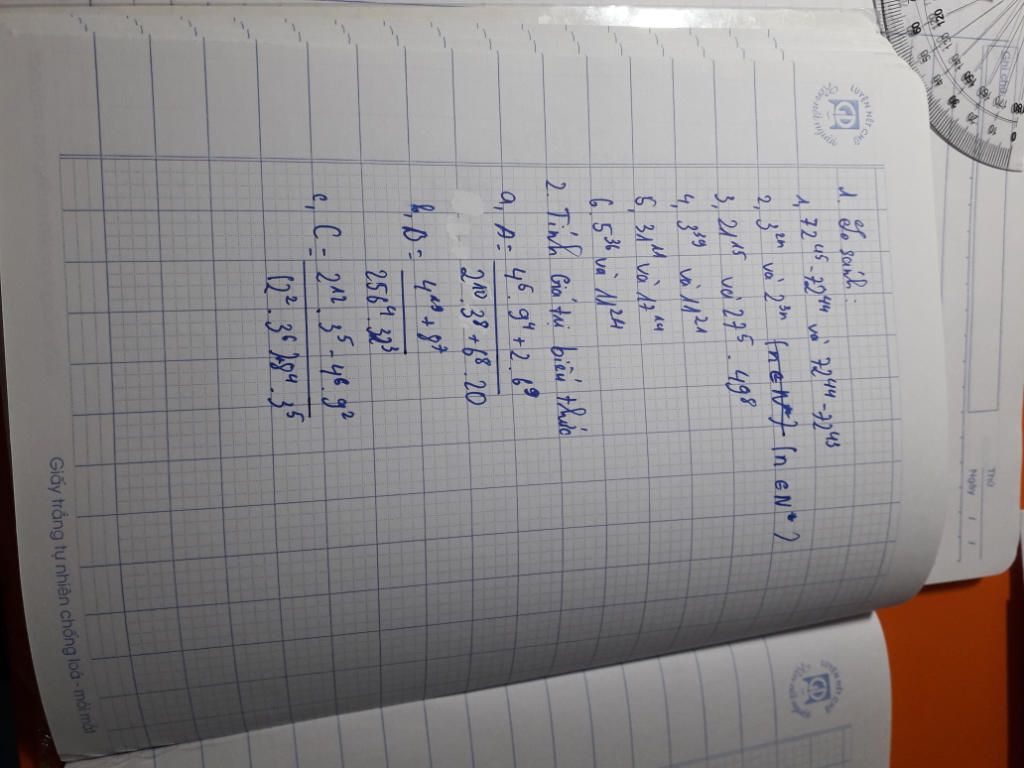 1. So sánh:
1, 72⁴⁵ - 72⁴⁴ và 72⁴⁴ - 72⁴³
2, 3²ⁿ và 2³ⁿ (n∈N*) (n∈N*)
3, 21¹⁵ và 27⁵. 49⁸
4, 3³⁹ và 11²¹
5, 31¹¹ và 17¹⁴
6. 5³⁶ và 11²⁴
2. Tính Giá trị biểu thức
a, A = 4⁶. 9⁴ + 2. 6⁹
2¹⁰. 3⁸ + 6⁸. 20
b, D = 4¹⁹ + 8⁷
256⁴. 32³
c, C = 2¹². 3⁵ - 4⁶ 9²
(2². 3⁶). 8⁴. 3⁵
Giấy trắng tự nhiên chống loá - mỏi mắt
LUYỆN NÉT CHỮ
Thứ
Ngày / /